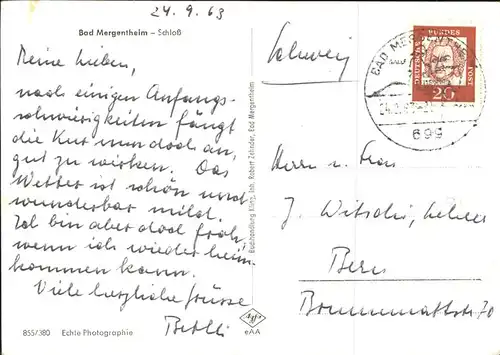 24.9.63
Bad Mergentheim – Schloß
Meine Lieben,
nach einigen Anfangs-
schwierigkeiten fängt
die Kur nun doch an,
gut zu wirken. Das
Wetter ist schön und
wunderbar mild.
Ich bin aber doch froh,
wenn ich wieder heim-
kommen kann.
Viele herzliche Grüsse
Bethli
855/380 Echte Photographie
Buchhandlung Inh. Robert Zehnder, Bad Mergentheim
Agfa
eAA
Schweiz
DEUTSCHE BUNDESPOST
20
BAD MERGENTHEIM
699
Herrn u. Frau
J. Witschi, Lehrer
Bern
Brunnmattstr. 70